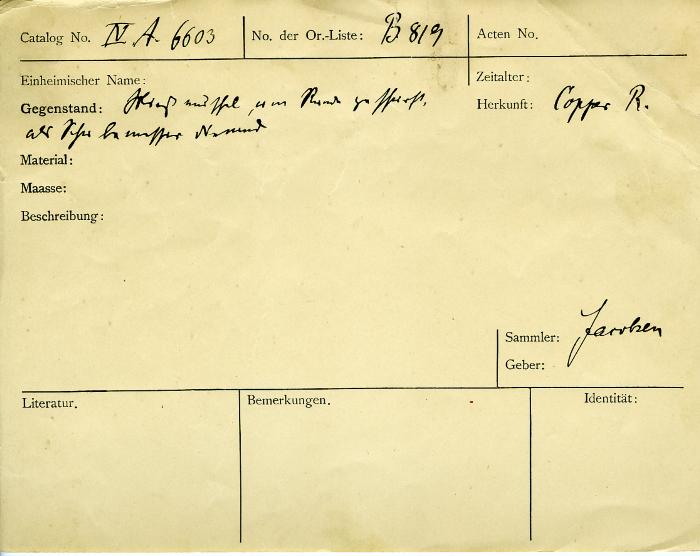 Catalog No. IV A 6603
No. der Or.-Liste: B 819
Acten No.
Einheimischer Name:
Zeitalter:
Gegenstand: muschel, am Rande geschärft,
Herkunft: Copper R.
als dienend
Material:
Maasse:
Beschreibung:
Sammler: Jacobsen
Geber:
Literatur.
Bemerkungen.
Identität: